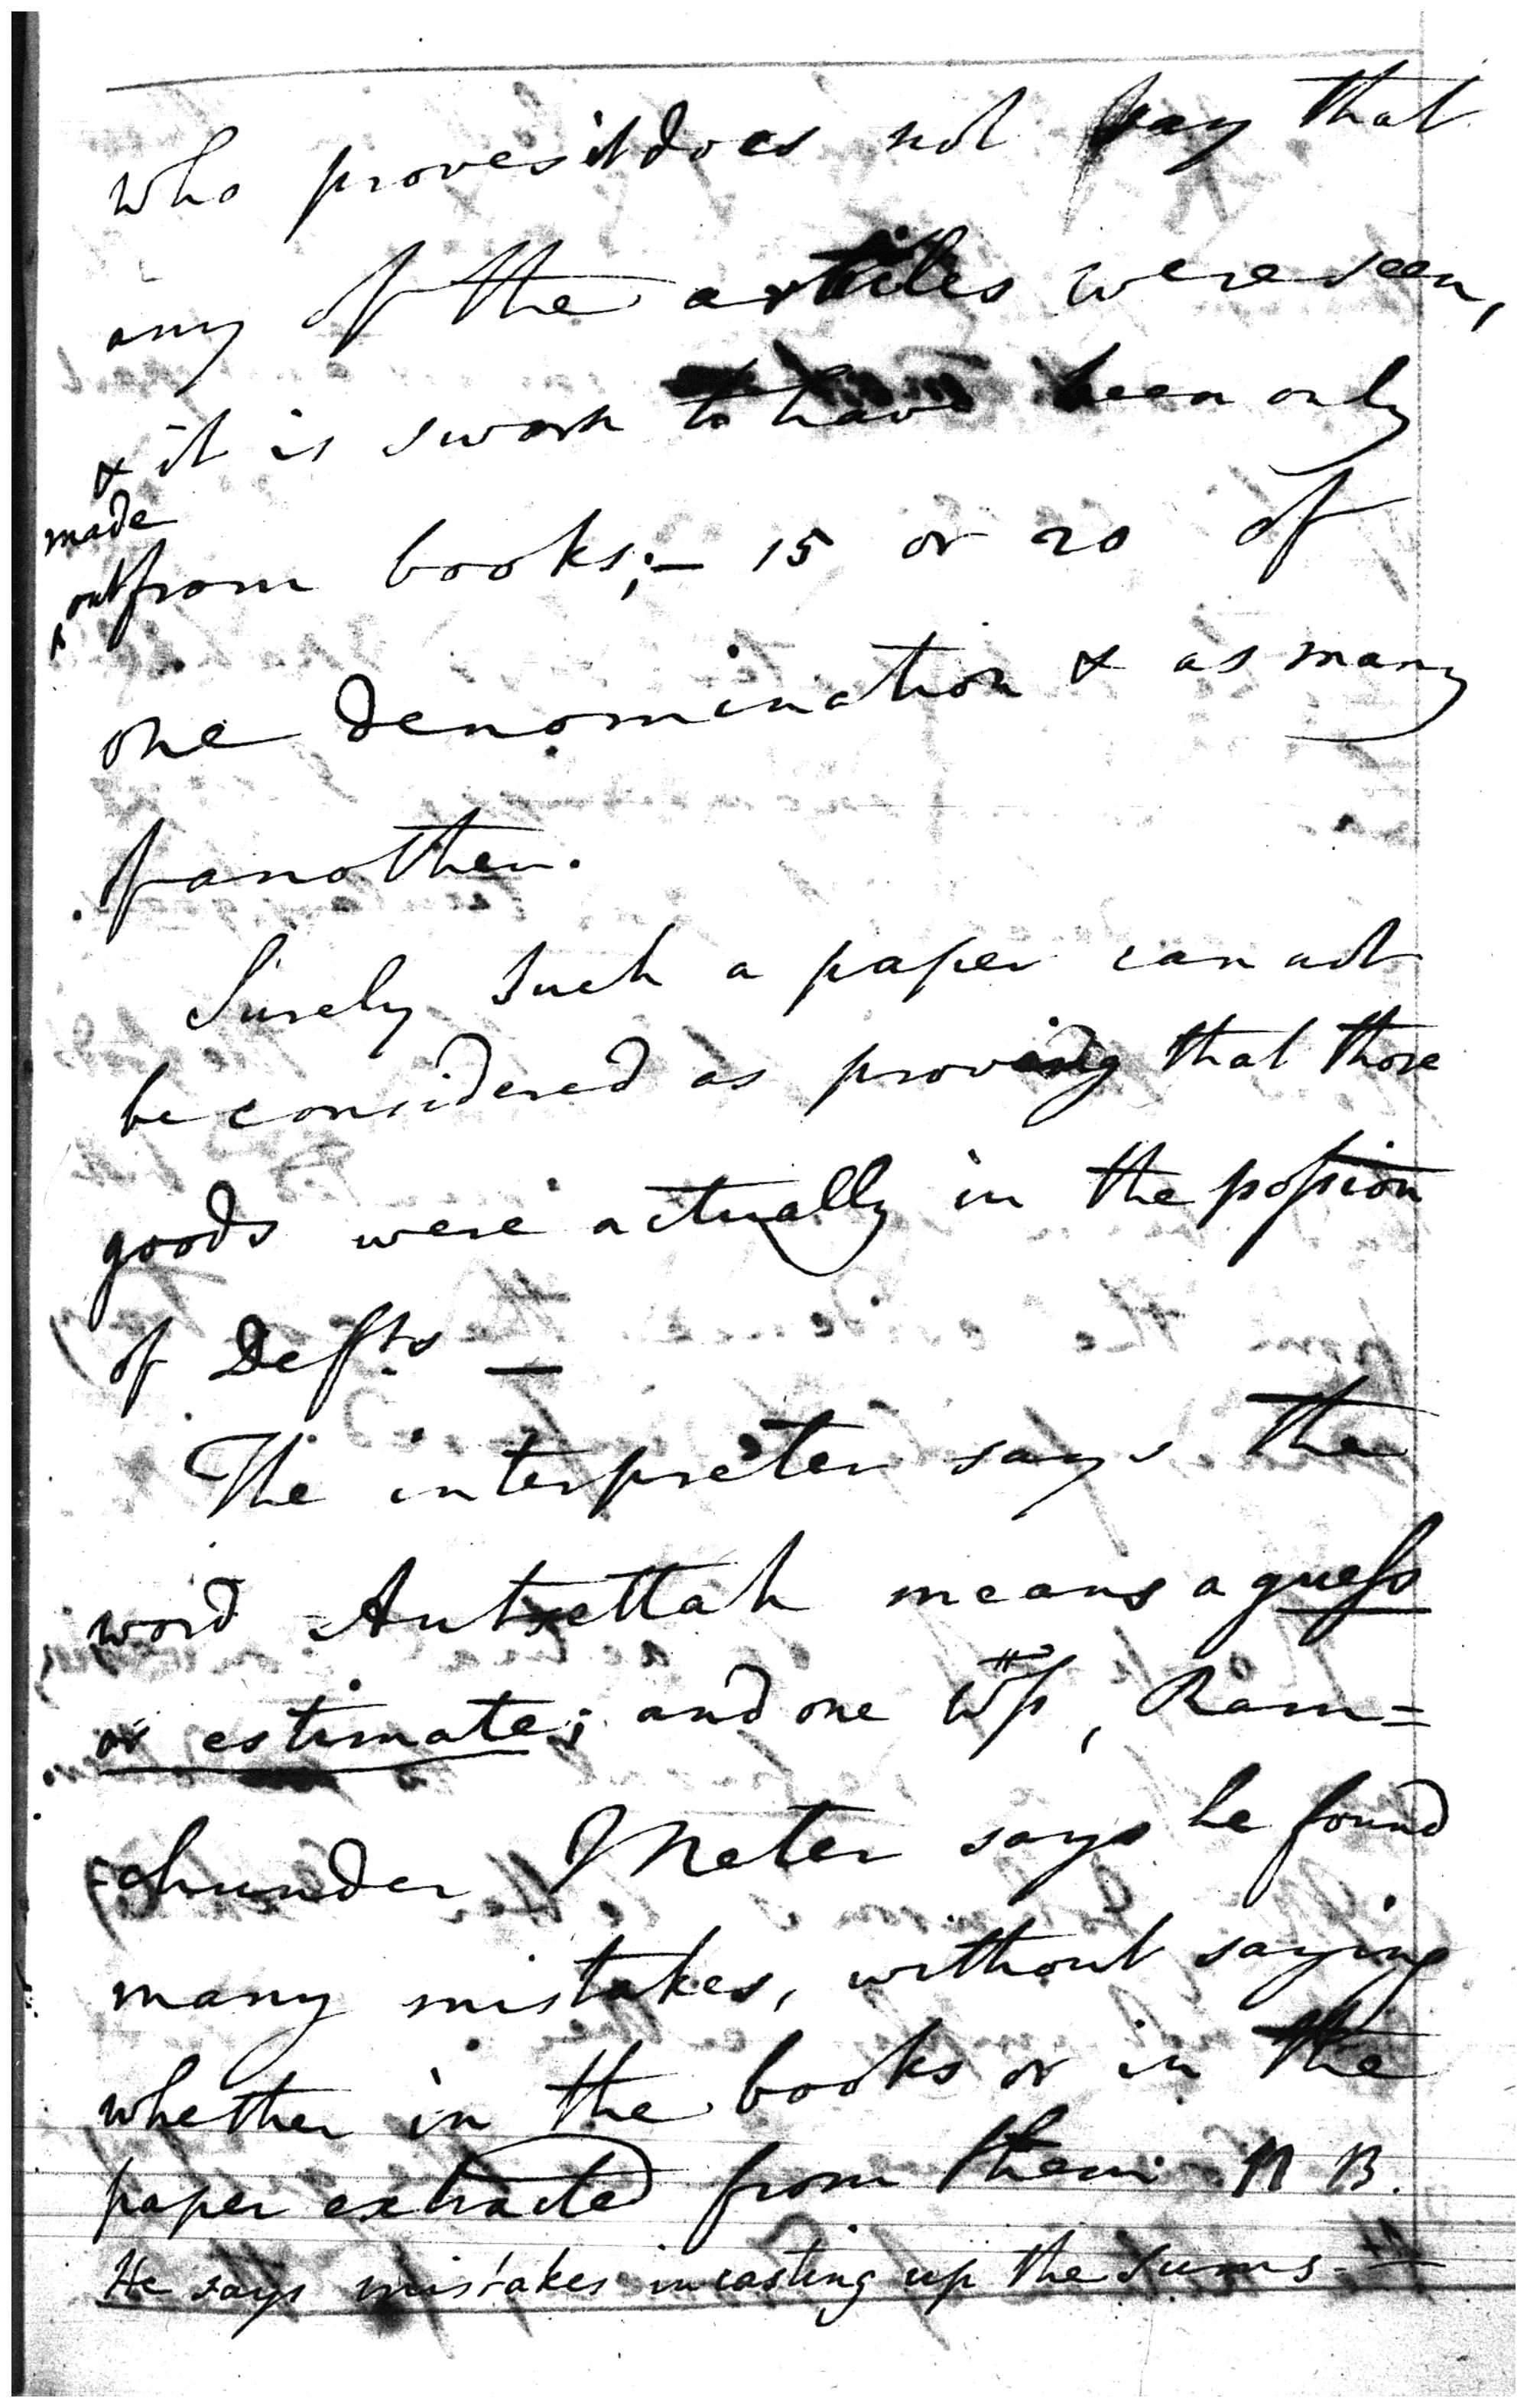 who proves it does not say that
any of the articles were seen,
& it is sworn to have been only
made
out from books;— 15 or 20 of
one denomination & as many
of another.
Surely such a paper can not
be considered as proving that those
goods were actually in the possion
of Defts —
The interpreter says the
word means a guess
or estimate; and one Wss, Ram=
=chunder Meter says he found
many mistakes, without saying
whether in the books or in the
paper extracted from them. N B.
He says mistakes in casting up the sums. —